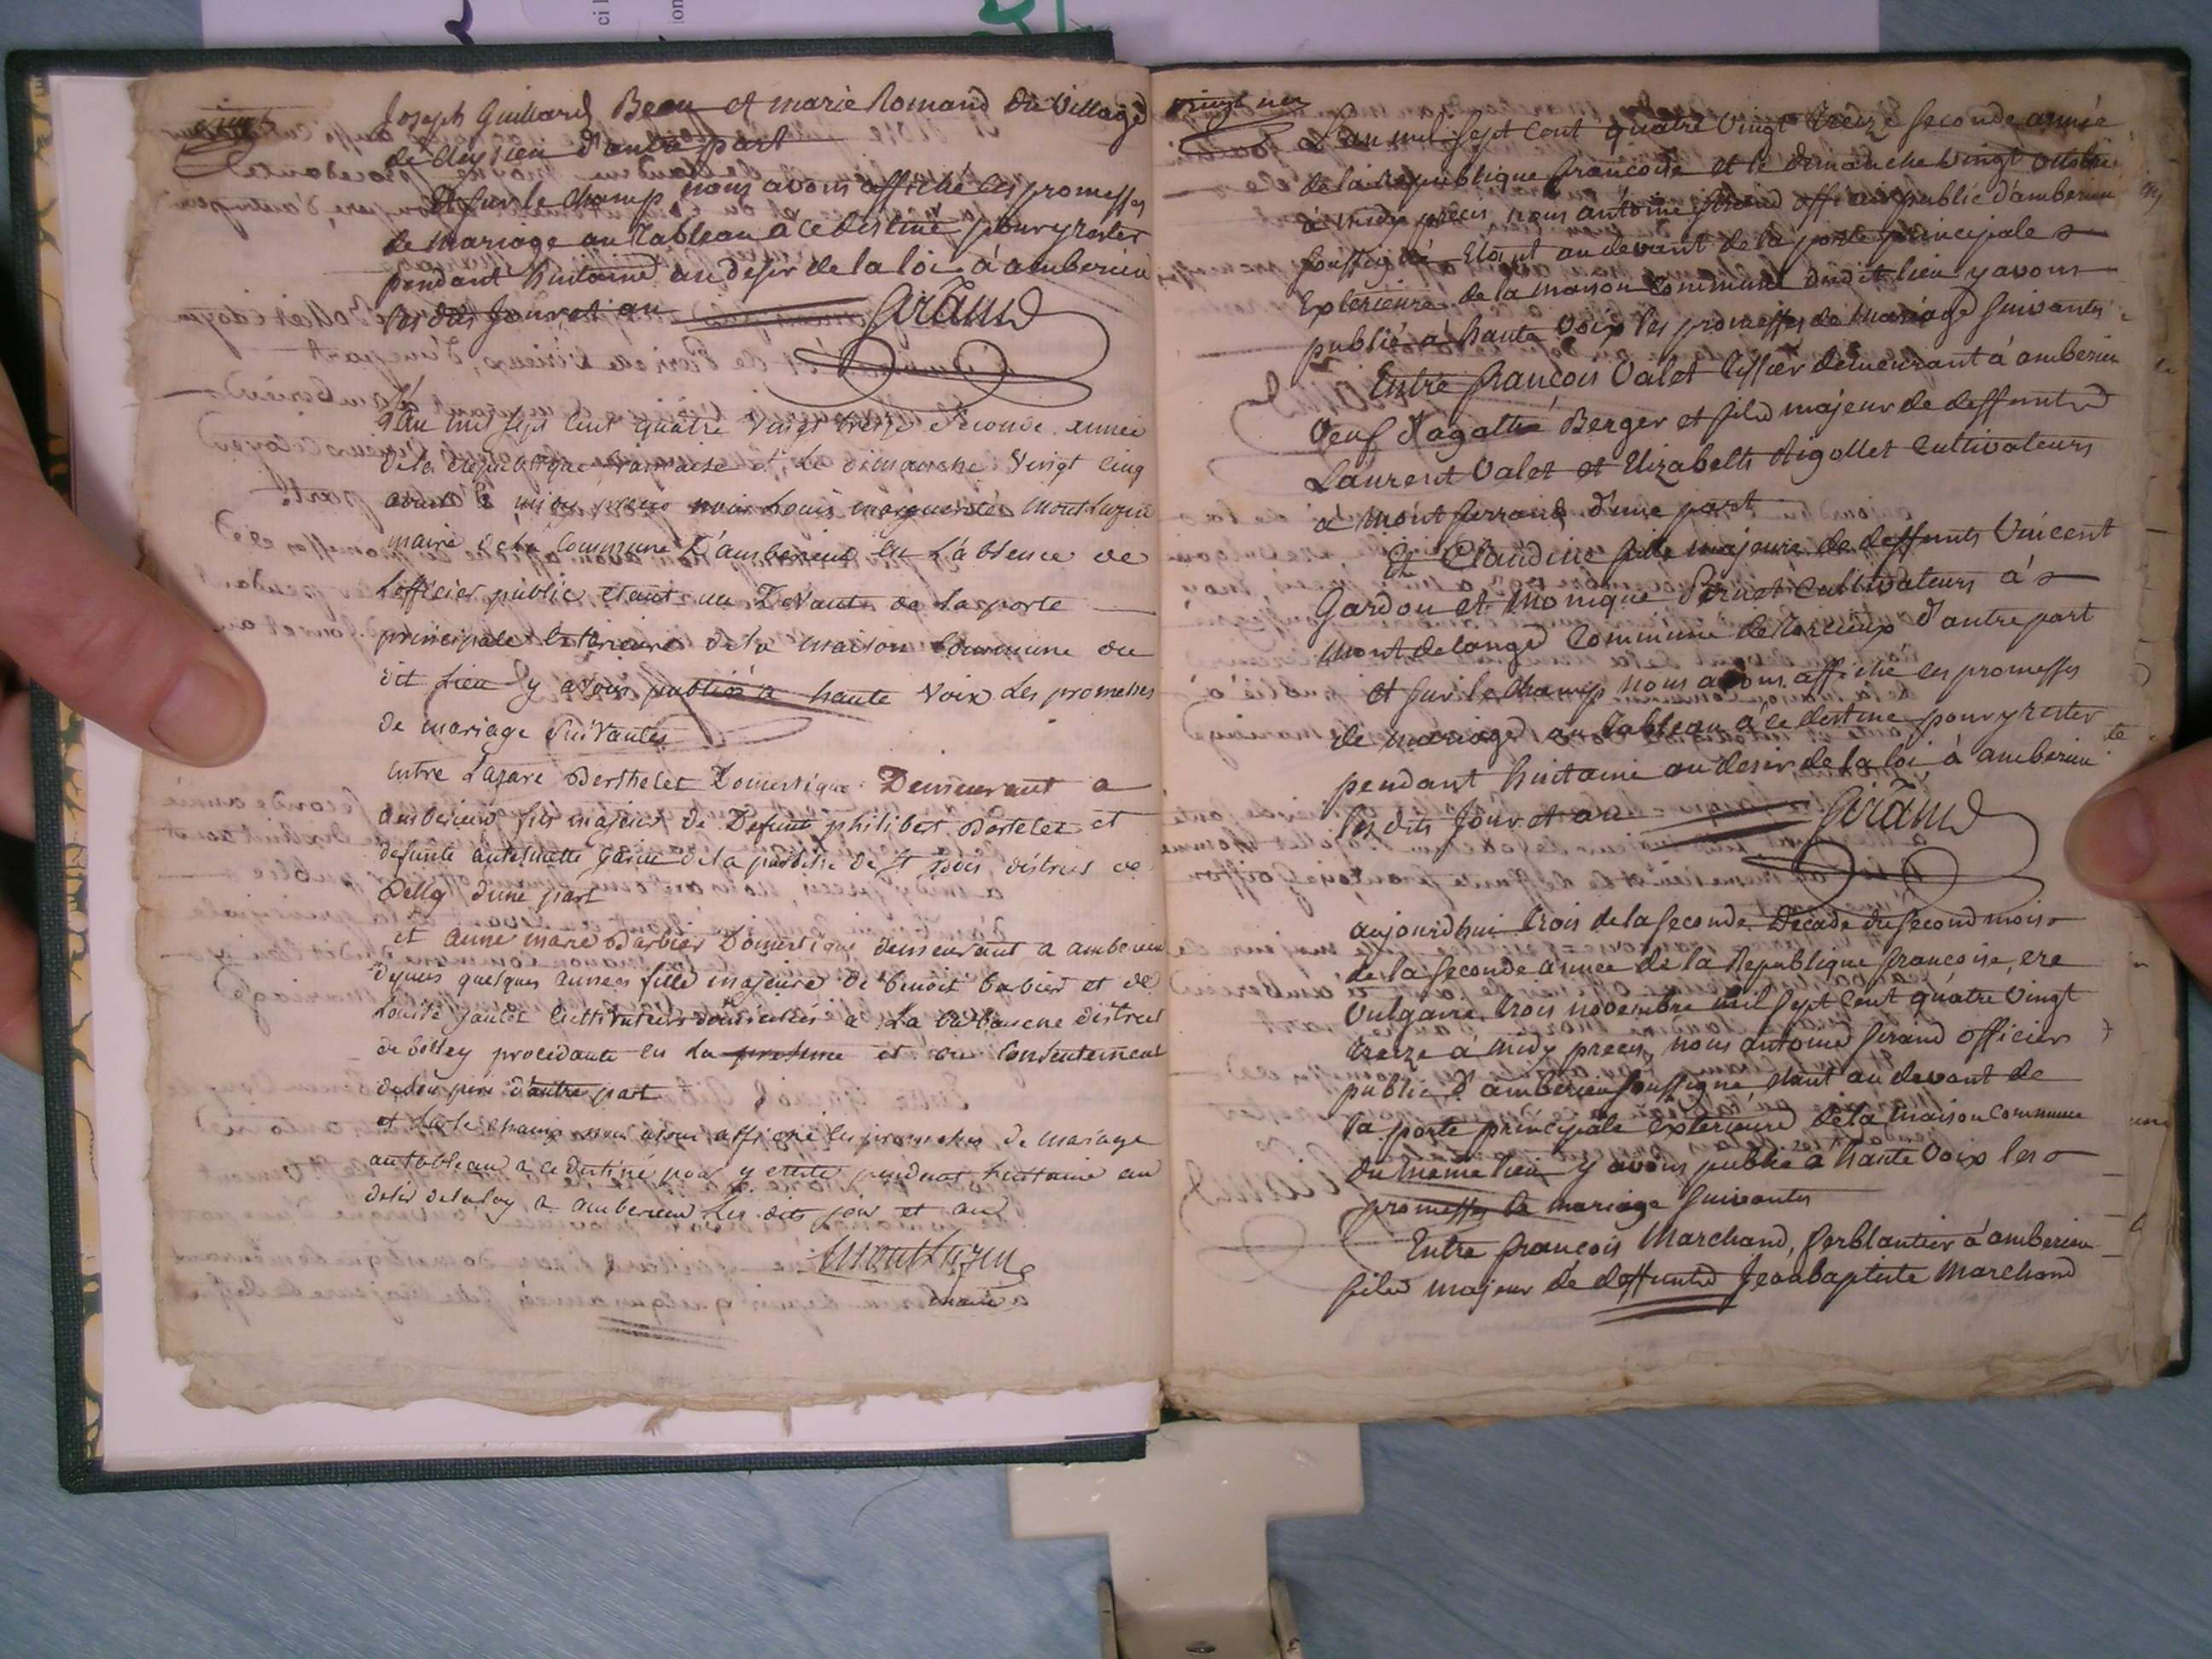 vingt
Joseph Guillard Beau et marie Romand du Village
de d'autre part
Et sur le champ nous avons affiché les promesses
de mariage au Tableau a ce destiné pour y rester
pendant huitaine au desir de la loi à amberieu
les dits jour et an Giraud
L'an mil sept cent quatre vingt treize Seconde année
de la republique francaise et le dimanche Vingt cinq
a midy precis nous Louis marguerite MontLuzin
maire de la Commune D'amberieux en L'absence de
L'officier public etant au Devant de la porte
principale Exterieure de la maison Commune du
dit Lieu y avons publié a haute Voix Les promesses
de mariage Suivantes
Entre Lazare Berthelet Domestique Demeurant a
amberieux fils majeur de Defunt philibert Bertelet et
defunte de la paroisse de St district de
d'une part
et anne marie Barbier Domestique demeurant a amberieu
depuis quelques annees fille majeure de benoit barbier et de
Louise cultivateurs domiciliés a La district
de procedante en la presence et du Consentement
de son pere d'autre part
et sur le champ nous avons affiché les promesses de mariage
au tableau a ce destiné pour y rester pendant huitaine au
desir de la loy a amberieu Les dits jour et an
MontLuzin
maire
vingt un
L'an mil sept cent quatre vingt treize seconde année
de la republique françoise et le dimanche vingt octobre
à midy precis nous antoine Girand officier public d'amberieu
soussigné Etant au devant de la porte principale
Exterieure de la maison Commune dudit lieu y avons
publié à haute voix les promesses de mariage suivantes
Entre françois Valet tissier demeurant à amberieu
Veuf d'agathe Berger et fils majeur de deffunts
Laurent Valet et Elizabeth Rigollet Cultivateurs
à Montferrand d'une part
Et Claudine fille majeure de deffunts Vincent
Gardon et Monique Cultivateurs à
Mont de lange Commune de Torcieux d'autre part
et sur le champ nous avons affiché les promesses
de mariage au tableau à ce destiné pour y rester
pendant huitaine au desir de la loi à amberieu
les dits jour et an Girand
aujourd'hui trois de la seconde Decade du second mois
de la seconde année de la Republique françoise, ere
vulgaire trois novembre mil sept cent quatre vingt
treize à midy precis, nous antoine Girand officier
public d'amberieu soussigné etant au devant de
la porte principale exterieure de la maison commune
du meme lieu y avons publié à haute voix les
promesses de mariage suivantes
Entre françois Marchand, ferblantier à amberieu
fils majeur de deffunts Jean baptiste Marchand